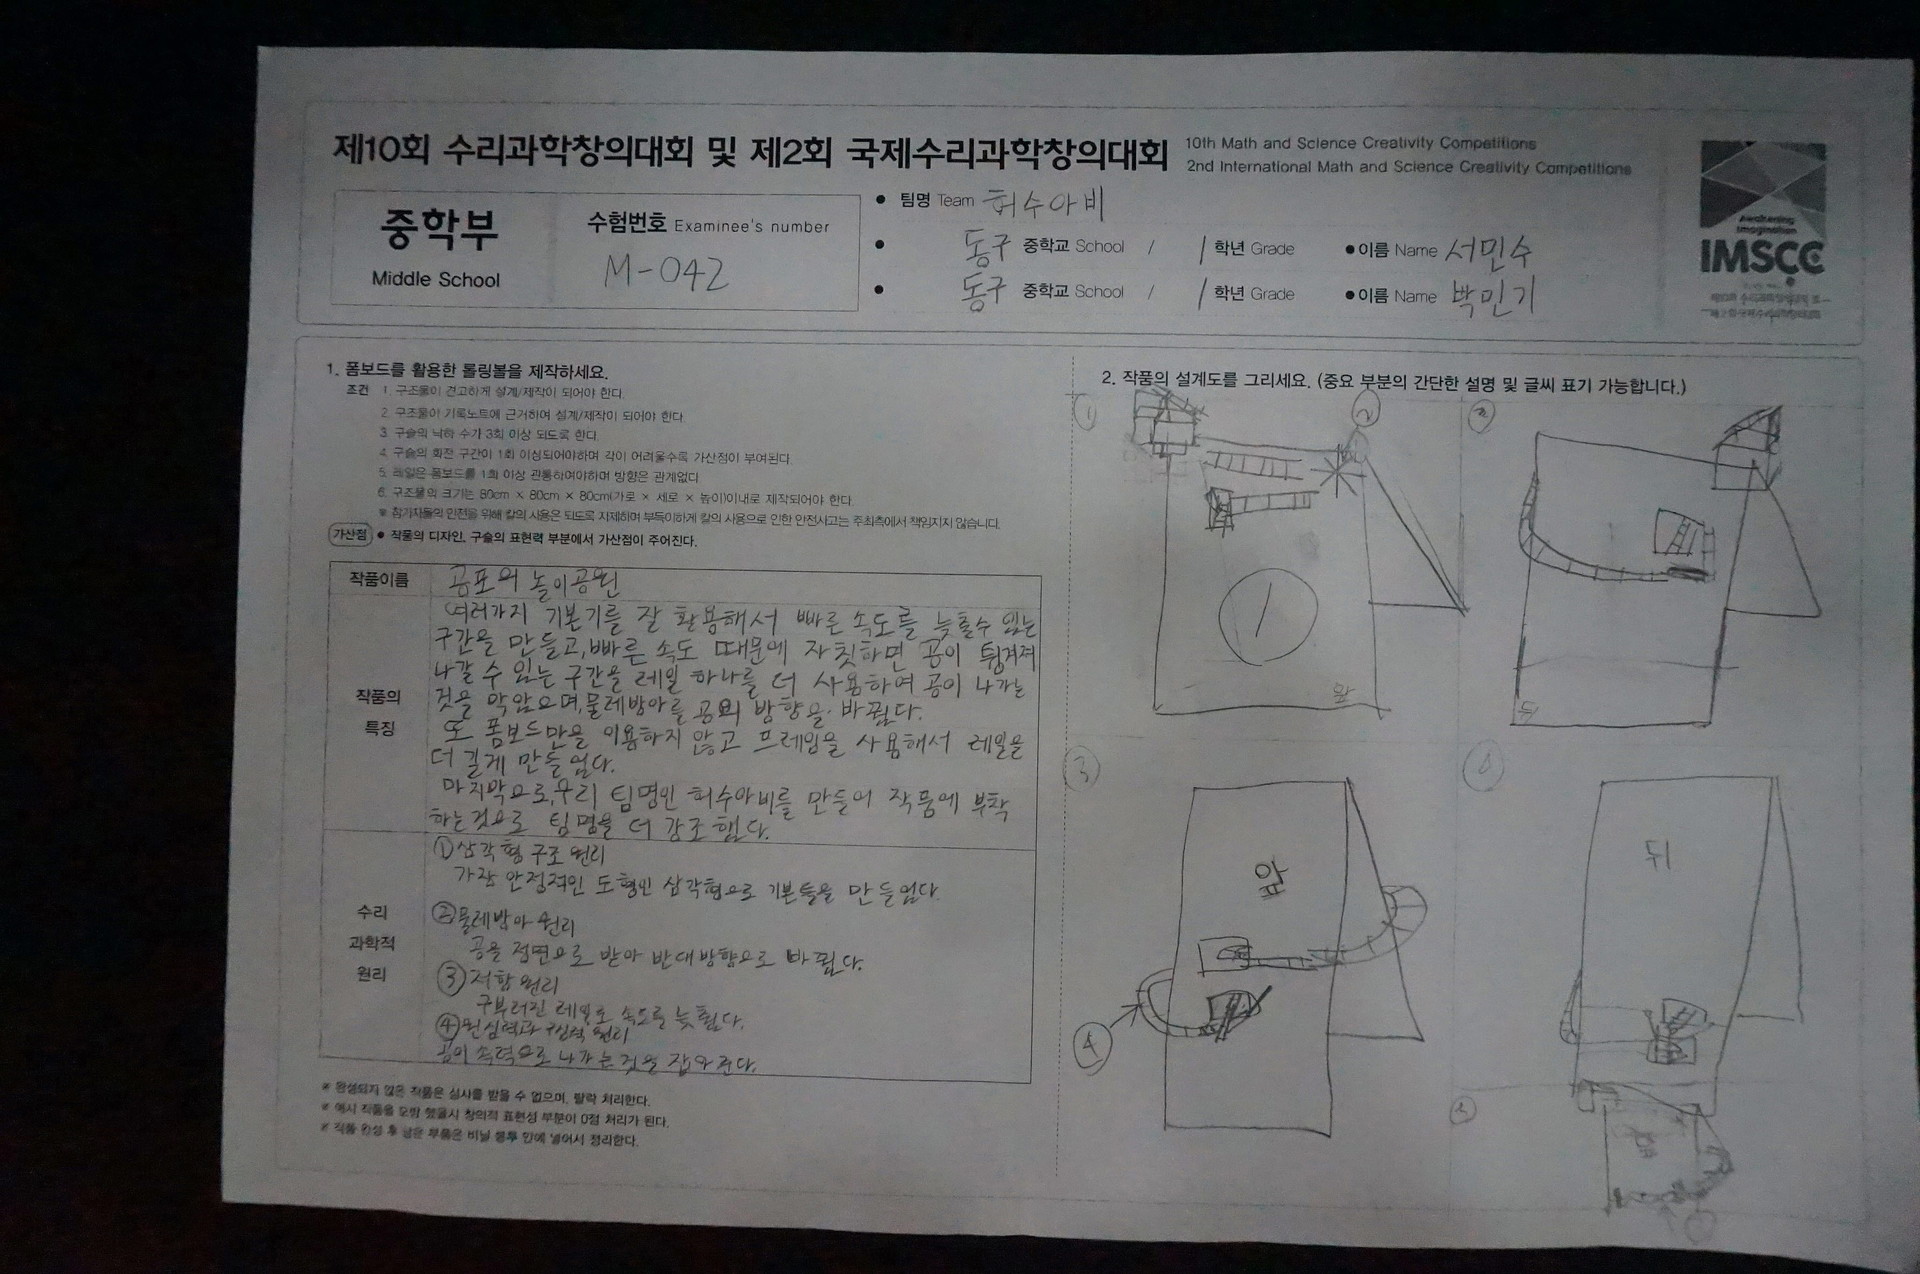 제10회 수리과학창의대회 및 제2회 국제수리과학창의대회
10th Math and Science Creativity Competitions
2nd International Math and Science Creativity Competitions
중학부
Middle School
수험번호 Examinee's number
M-042
• 팀명 Team 허수아비
• 동구 중학교 School / 1 학년 Grade • 이름 Name 서민수
• 동구 중학교 School / 1 학년 Grade • 이름 Name 박민기
Awakening
Imagination
IMSCC
1. 폼보드를 활용한 롤링볼을 제작하세요.
조건 1. 구조물이 견고하게 설계/제작이 되어야 한다.
2. 구조물이 기록노트에 근거하여 설계/제작이 되어야 한다.
3. 구슬의 낙하 수가 3회 이상 되도록 한다.
4. 구슬의 회전 구간이 1회 이상되어야하며 각이 어려울수록 가산점이 부여된다.
5. 레일은 폼보드를 1회 이상 관통하여야하며 방향은 관계없다
6. 구조물의 크기는 80cm × 80cm × 80cm(가로 × 세로 × 높이)이내로 제작되어야 한다.
※ 참가자들의 안전을 위해 칼의 사용은 되도록 자제하며 부득이하게 칼의 사용으로 인한 안전사고는 주최측에서 책임지지 않습니다.
가산점 • 작품의 디자인, 구슬의 표현력 부분에서 가산점이 주어진다.
작품이름 공포의 놀이공원
작품의
특징
여러가지 기본기를 잘 활용해서 빠른 속도를 늦출수 있는
구간을 만들고, 빠른 속도 때문에 자칫하면 공이 튕겨져
나갈 수 있는 구간을 레일 하나를 더 사용하여 공이 나가는
것을 막았으며, 물레방아를 공의 방향을 바꿨다.
또 폼보드만을 이용하지 않고 프레임을 사용해서 레일을
더 길게 만들었다.
마지막으로, 우리 팀명인 허수아비를 만들어 작품에 부착
하는것으로 팀명을 더 강조했다.
수리
과학적
원리
① 삼각형 구조 원리
가장 안정적인 도형인 삼각형으로 기본틀을 만들었다.
② 물레방아 원리
공을 정면으로 받아 반대방향으로 바꿨다.
③ 저항 원리
구부러진 레일로 속도를 늦췄다.
④ 원심력과 구심력 원리
공이 속력으로 나가는 것을 잡아준다.
※ 완성되지 않은 작품은 심사를 받을 수 없으며, 탈락 처리한다.
※ 예시 작품을 모방 했을시 창의적 표현성 부분이 0점 처리가 된다.
※ 작품 완성 후 남은 부품은 비닐 봉투 안에 넣어서 정리한다.
2. 작품의 설계도를 그리세요. (중요 부분의 간단한 설명 및 글씨 표기 가능합니다.)
①
②
1
앞
뒤
③
앞
④
뒤